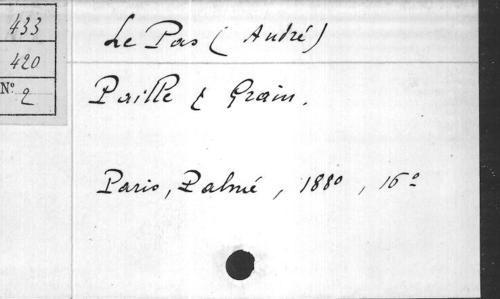 433
420
N° 2
Le Pas (André)
Paille & Grain.
Paris, Palmé, 1880, 16°